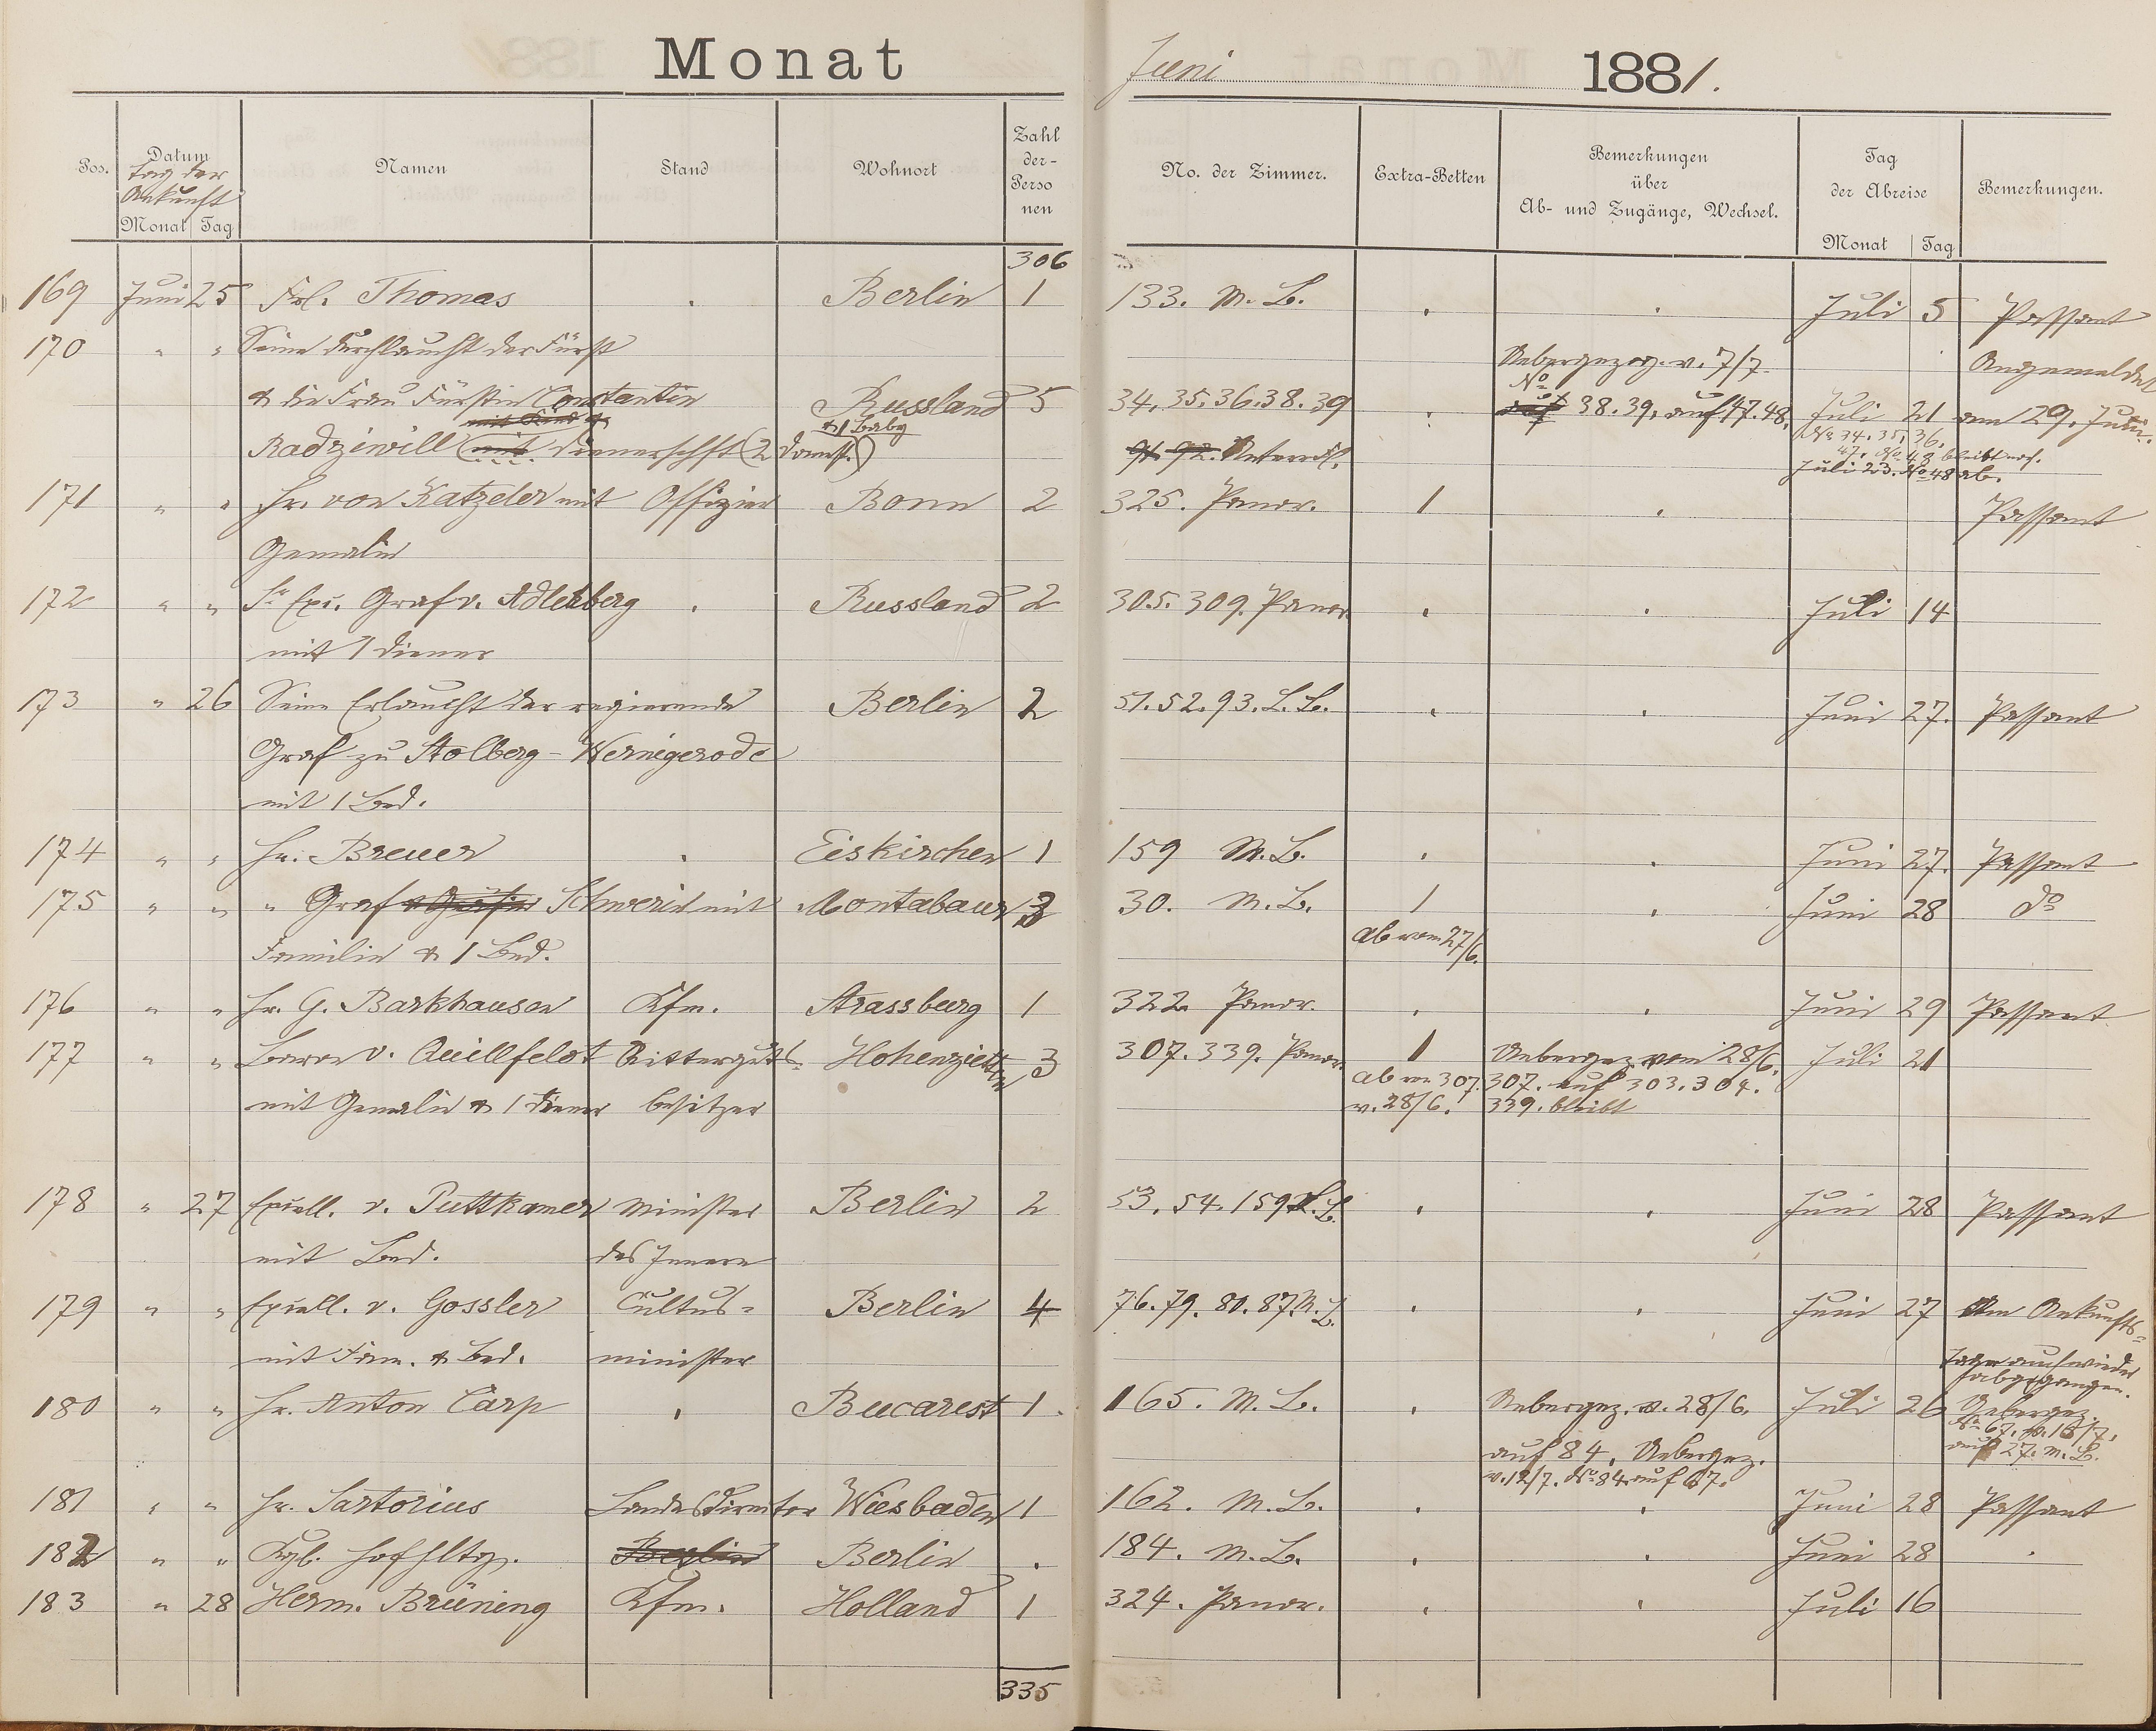 Monat Juni 1881.
Pos. Datum Namen Stand Wohnort Zahl der- Perso nen No. der Zimmer. Extra-Betten Bemerkungen über Ab- und Zugänge, Wechsel. Tag der Abreise Bemerkungen.
Tag der
Ankunft
Monat Tag Monat Tag
306
169 Juni 25 Frl. Thomas . Berlin 1 133. M. L. . . Juli 5 Passant
170 " " Seine Durchlaucht der Fürst Uebergezog. v. 7/7. Angemeldet
& die Frau Fürstin Constantin Russland 5 34. 35. 36. 38. 39 . No 38. 39. auf 47. 48. Juli 21 am 29. Juni.
mit Kind & & 1 Baby No 34. 35. 36.
Radziwill (mit Dienerschft (2 Domest.) 91. 92. Unterdl. 47. No 48 bleibt noch.
Juli 23. No 48 ab.
171 " " Hr. von Katzeler mit Offizier Bonn 2 325. Panor. 1 . Passant
Gemalin
172 " " Sr. Exc. Graf v. Adlerberg . Russland 2 305. 309. Panor. . . Juli 14
mit 1 Diener
173 " 26 Seine Erlaucht der regierende Berlin 2 51. 52. 93. L. L. . . Juni 27. Passant
Graf zu Stolberg-Wernigerode
mit 1 Bed.
174 " " Hr. Breuer . Eiskirchen 1 159 M. L. . . Juni 27. Passant
175 " " " Graf & Gräfin Schwerin mit Montabaur 3 30. M. L. 1 . Juni 28 do
Familie & 1 Bed. ab vom 27/6.
176 " " Hr. G. Barkhausen Kfm. Strassburg 1 322 Panor. . . Juni 29 Passant
177 " " Baron v. Quillfeldt Ritterguts- Hohenziethen 3 307. 339. Panor. 1 Uebergez. vom 28/6. Juli 21
ab von 307. 307. auf 303. 304.
mit Gemalin & 1 Diener besitzer v. 28/6. 339. bleibt
178 " 27 Excell. v. Puttkamer Minister Berlin 2 53. 54. 159 L. L. . . Juni 28 Passant
mit Bed. des Innern
179 " " Excell. v. Gossler Cultus= Berlin 4 76. 79. 80. 87 M. L. . . Juni 27 Am Ankunfts=
mit Fam. & Bed. minister Tage auch wieder
abgegangen.
180 " " Hr. Anton Carp . Bucarest 1. 165. M. L. . Uebergez. v. 28/6. Juli 26 Uebergez.
No 67. v. 18/7.
auf 84. Uebergez. auf 27. M. L.
v. 12/7. No 84 auf 67.
181 " " Hr. Sartorius Landesdirector Wiesbaden 1 162. M. L. . . Juni 28 Passant
182 " " Kgl. Hofhltg. Berlin Berlin . 184. M. L. . . Juni 28 .
183 " 28 Herm. Brüning Kfm. Holland 1 324. Panor. . . Juli 16
335